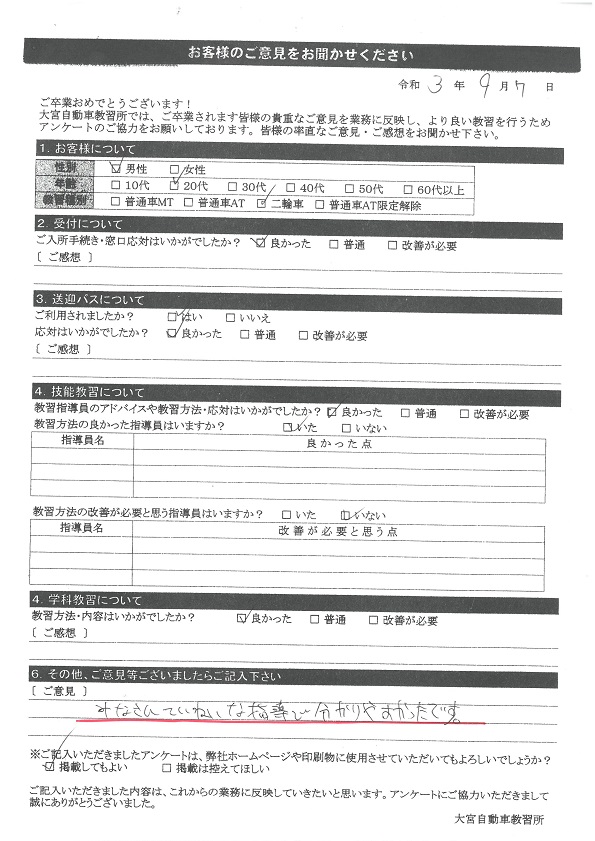 お客様のご意見をお聞かせください
令和 3 年 9 月 7 日
ご卒業おめでとうございます！
大宮自動車教習所では、ご卒業されます皆様の貴重なご意見を業務に反映し、より良い教習を行うため
アンケートのご協力をお願いしております。皆様の率直なご意見・ご感想をお聞かせ下さい。
1. お客様について
性別 ☑男性 □女性
年齢 □10代 ☑20代 □30代 □40代 □50代 □60代以上
教習種別 □普通車MT □普通車AT ☑二輪車 □普通車AT限定解除
2. 受付について
ご入所手続き・窓口応対はいかがでしたか？ ☑良かった □普通 □改善が必要
〔 ご感想 〕
3. 送迎バスについて
ご利用されましたか？ ☑はい □いいえ
応対はいかがでしたか？ ☑良かった □普通 □改善が必要
〔 ご感想 〕
4. 技能教習について
教習指導員のアドバイスや教習方法・応対はいかがでしたか？ ☑良かった □普通 □改善が必要
教習方法の良かった指導員はいますか？ ☑いた □いない
指導員名 良かった点
教習方法の改善が必要と思う指導員はいますか？ □いた ☑いない
指導員名 改善が必要と思う点
4. 学科教習について
教習方法・内容はいかがでしたか？ ☑良かった □普通 □改善が必要
〔 ご感想 〕
6. その他、ご意見等ございましたらご記入下さい
〔 ご意見 〕
みなさんていねいな指導で分かりやすかったです。
※ご記入いただきましたアンケートは、弊社ホームページや印刷物に使用させていただいてもよろしいでしょうか？
☑掲載してもよい □掲載は控えてほしい
ご記入いただきました内容は、これからの業務に反映していきたいと思います。アンケートにご協力いただきまして
誠にありがとうございました。
大宮自動車教習所